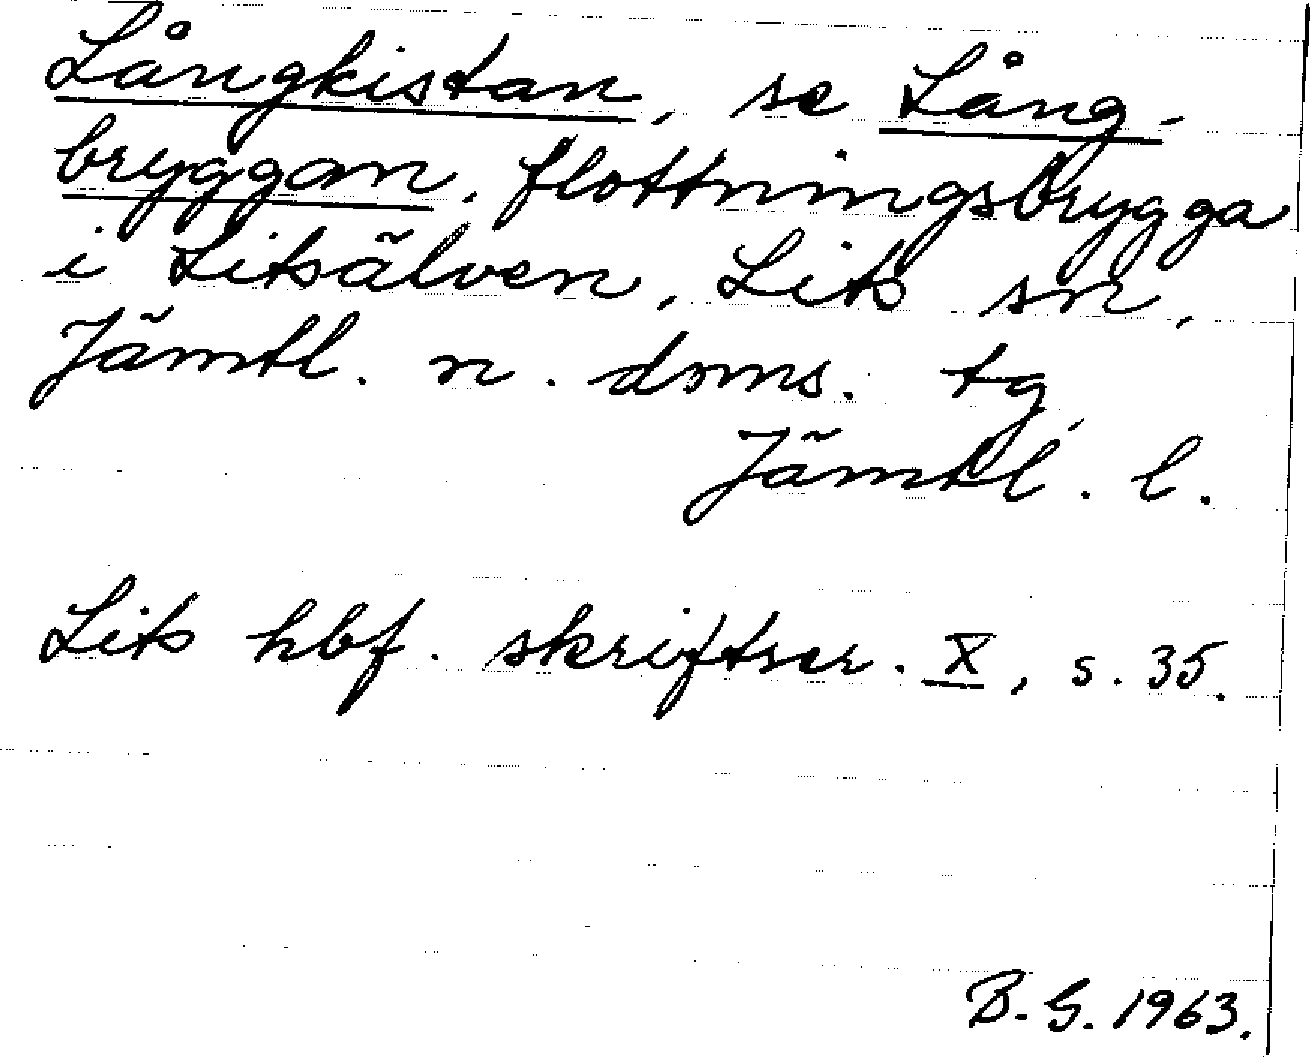 Långkistan, se Lång-
bryggan, flottningsbrygga
i Litsälven, Lits sn,
Jämtl. n. doms. tg,
Jämtl. l.
Lits hbf. skriftser. X, s. 35.
B. G. 1963.